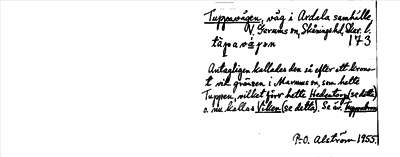 Tuppavägen, väg i Ardala samhälle,
N. Garums sn, Skånings hd, Skar. l.
tùpavǽgən 173
Antagligen kallades den så efter ett krono-
t vid gränsen i Marums sn, som hette
Tuppen, vilket förr hette Hedentorp (se detta)
o. nu kallas Viken (se detta). Se äv.
P-O. Alström 1955.